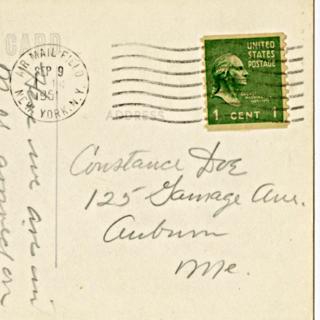 CARD
AIR MAIL FIELD
SEP 9
1951
NEW YORK, N.Y.
UNITED
STATES
POSTAGE
1 CENT 1
ADDRESS
Constance Doe
125 Gamage Ave.
Auburn
Me.
Here we are in